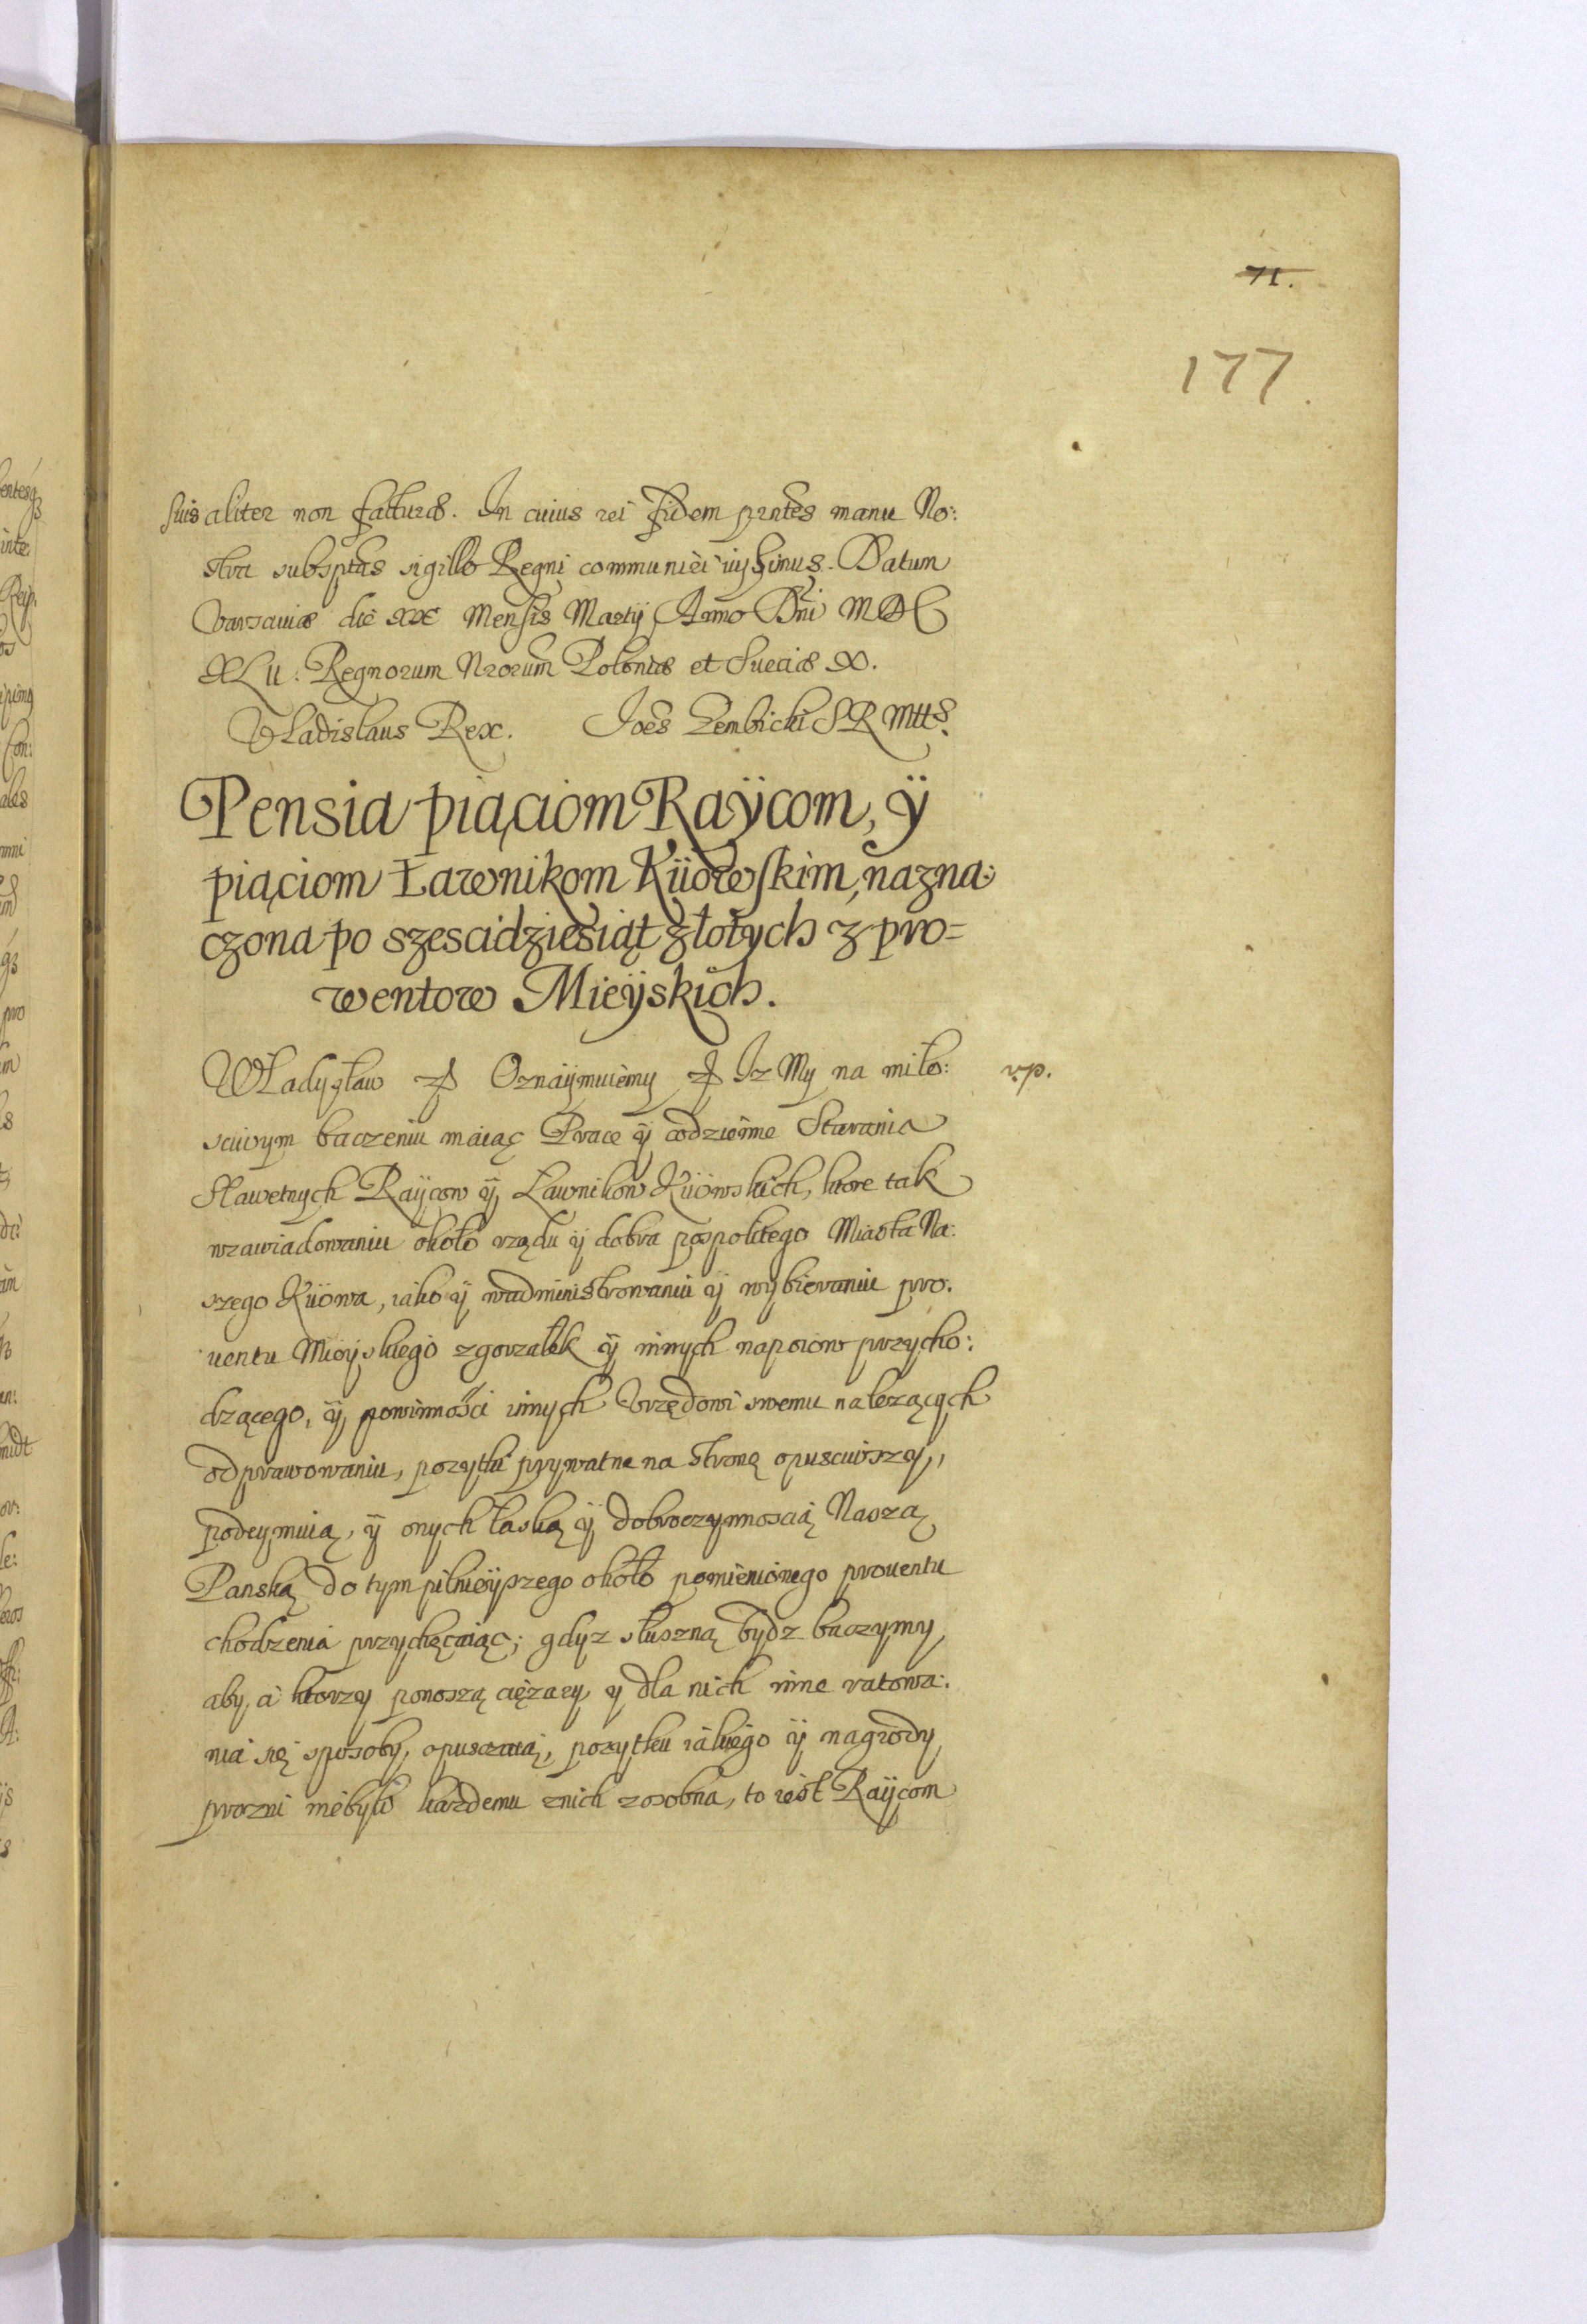 71.
177.
suis aliter non facturos. In cuius rei fidem prntes manu No:
stra subsptas sigillo Regni communiri iussimus. Datum
Varsaviæ die XX Mensis Martij Anno Dni MDC
XLII: Regnorum Nrorum Poloniæ et Sueciæ X.
Vladislaus Rex. Joēs Zembicki SR Mtts.
Pensia piąciom Raÿcom, ÿ
piąciom Ławnikom Kÿowskim, nazna:
czona po szescidziesiąt złotych z pro=
wentow Mieÿskich.
Władysław Oznaÿmuiemy Iz My na miło: v.p.
sciwym baczeniu maiąc Prace ÿ codzienne Starania
Sławetnych Raÿcow ÿ Ławnikow Kÿowskich, ktore tak
wzawiadowaniu około vrzędu ÿ dobra pospolitego Miasta Na:
szego Kÿowa, iako ÿ wadministrowaniu ÿ wybieraniu pro.
uentu Mieÿskiego zgorzałek ÿ innych napoiow przycho:
dzącego, ÿ powinnosci innych Vrzędowi swemu nalezących
odprawowaniu, pozytki prywatne na stronę opusciwszy,
podeymuią, ÿ onych łaską ÿ dobroczynnoscią Naszą
Panską do tym pilnieÿszego około pomienionego prouentu
chodzenia przychęcaiąc; gdyz słuszną bydz baczymy,
aby ci ktorzy ponoszą cięzary, y dla nich inne ratowa:
nia się sposoby, opusczaią, pozytku iakiego ÿ nagrody
prozni niebyli kazdemu znich zosobna, to iest Raÿcom